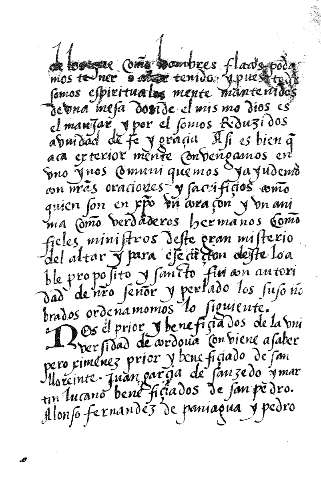 como hombres flacos poda
mos tener o aver tenido y pues todos
somos espiritualmente mantenidos
de una mesa donde el mismo dios es
el manjar y por el somos Reduzidos
a vnidad de fe y gracia Asi es bien q̃
aca exterior mente convengamos en
vno y nos comuniquemos y ayudemos
con nr̃as oraciones y sacrificios como
quien son en xp̃o vn coraçon y vn ani
ma como verdaderos hermanos como
fieles ministros deste gran misterio
del altar y para esecucion deste loa
ble proposito y sancto fui con autori
dad de nr̃o señor y perlado los suso nõ
brados ordenamos lo siguiente.
Nos el prior y beneficiados de la vni
versidad de cordova conviene a saber
pero ximenez prior y beneficiado de san
llorente. Juan garçia de sauzedo y mar
tin lucano beneficiados de san pedro.
Alonso fernandez de paniagua y pedro